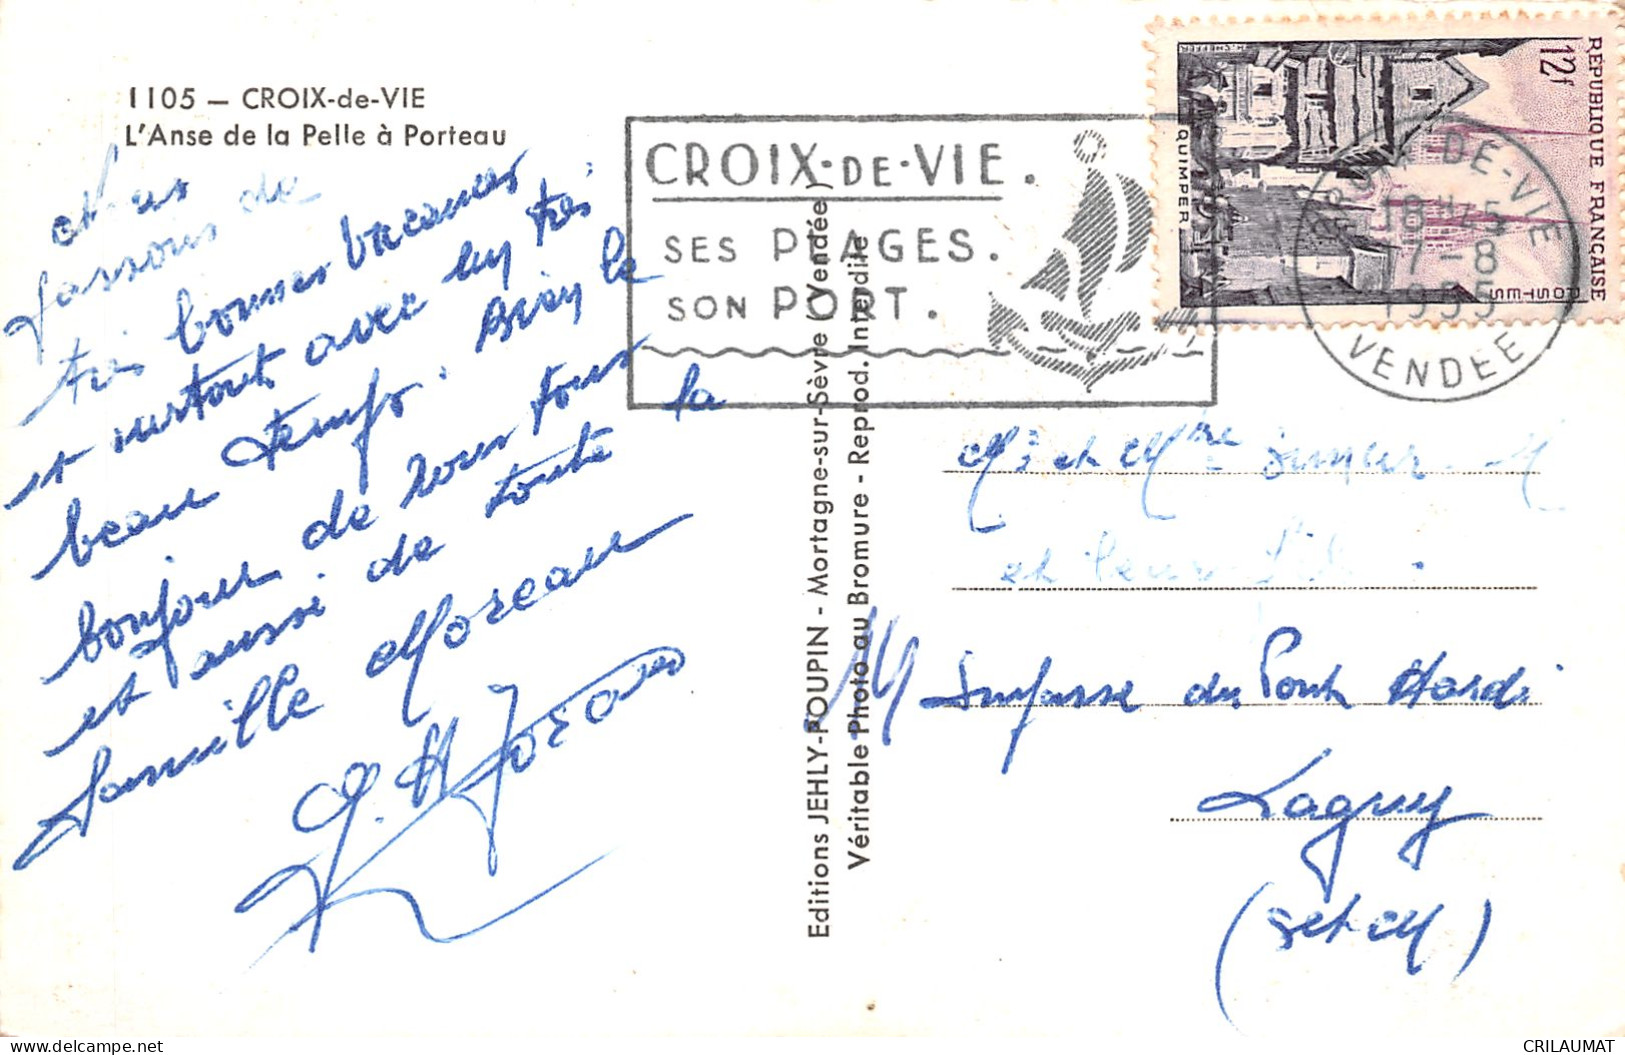 1105 — CROIX-de-VIE
L'Anse de la Pelle à Porteau
Nous
passons de
très bonnes vacances
et surtout avec un très
beau temps. Bien le
bonjour de nous tous
et aussi de toute la
famille Moreau
G. Moreau
Editions JEHLY-POUPIN - Mortagne-sur-Sèvre (Vendée)
Véritable Photo au Bromure - Reprod. Interdite
CROIX-DE-VIE.
SES PLAGES.
SON PORT.
RÉPUBLIQUE FRANÇAISE
12f
POSTES
QUIMPER
DE-VIE
18H45
7-8
1955
VENDEE
Mr et Mme
et leur
Impasse du Pont Hardi
Lagny
(S et M)
delcampe.net
CRILAUMAT